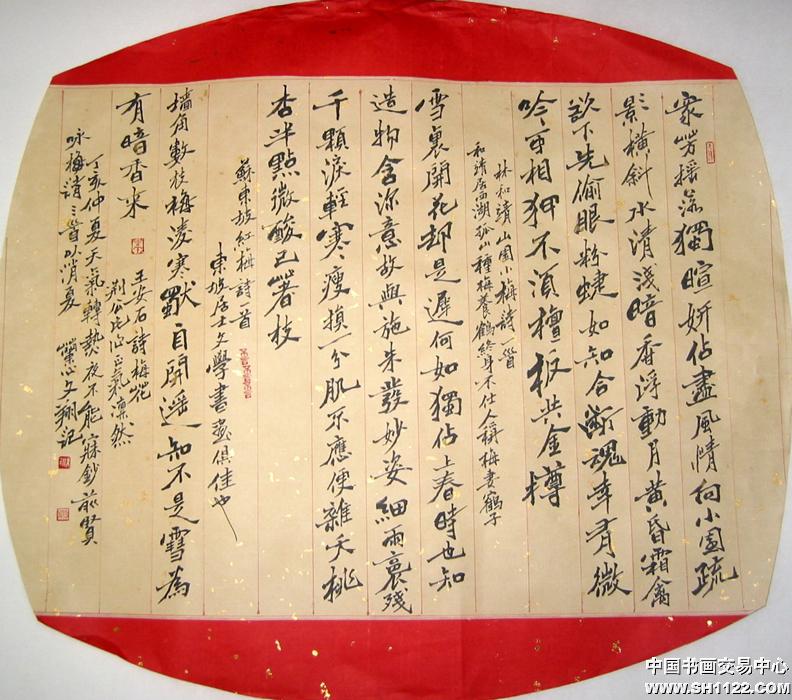 眾芳搖落獨暄妍佔盡風情向小園疏
影橫斜水清淺暗香浮動月黃昏霜禽
欲下先偷眼粉蝶如知合斷魂幸有微
吟可相狎不須檀板共金樽
林和靖山園小梅詩一首
和靖居西湖孤山種梅養鶴終身不仕人稱梅妻鶴子
雪裏開花却是遲何如獨佔上春時也知
造物含深意故與施朱發妙姿細雨裛殘
千顆淚輕寒瘦損一分肌不應便雜夭桃
杏半點微酸已著枝
蘇東坡紅梅詩一首
東坡居士文學書畫俱佳也
墙角數枝梅凌寒獸自開遥知不是雪為
有暗香来
王安石詩梅花
荆公此正氣凛然
丁亥仲夏天氣轉熱夜不能寐鈔前賢
咏梅詩三首以消夏 文翔記
中国书画交易中心
www.SH1122.COM